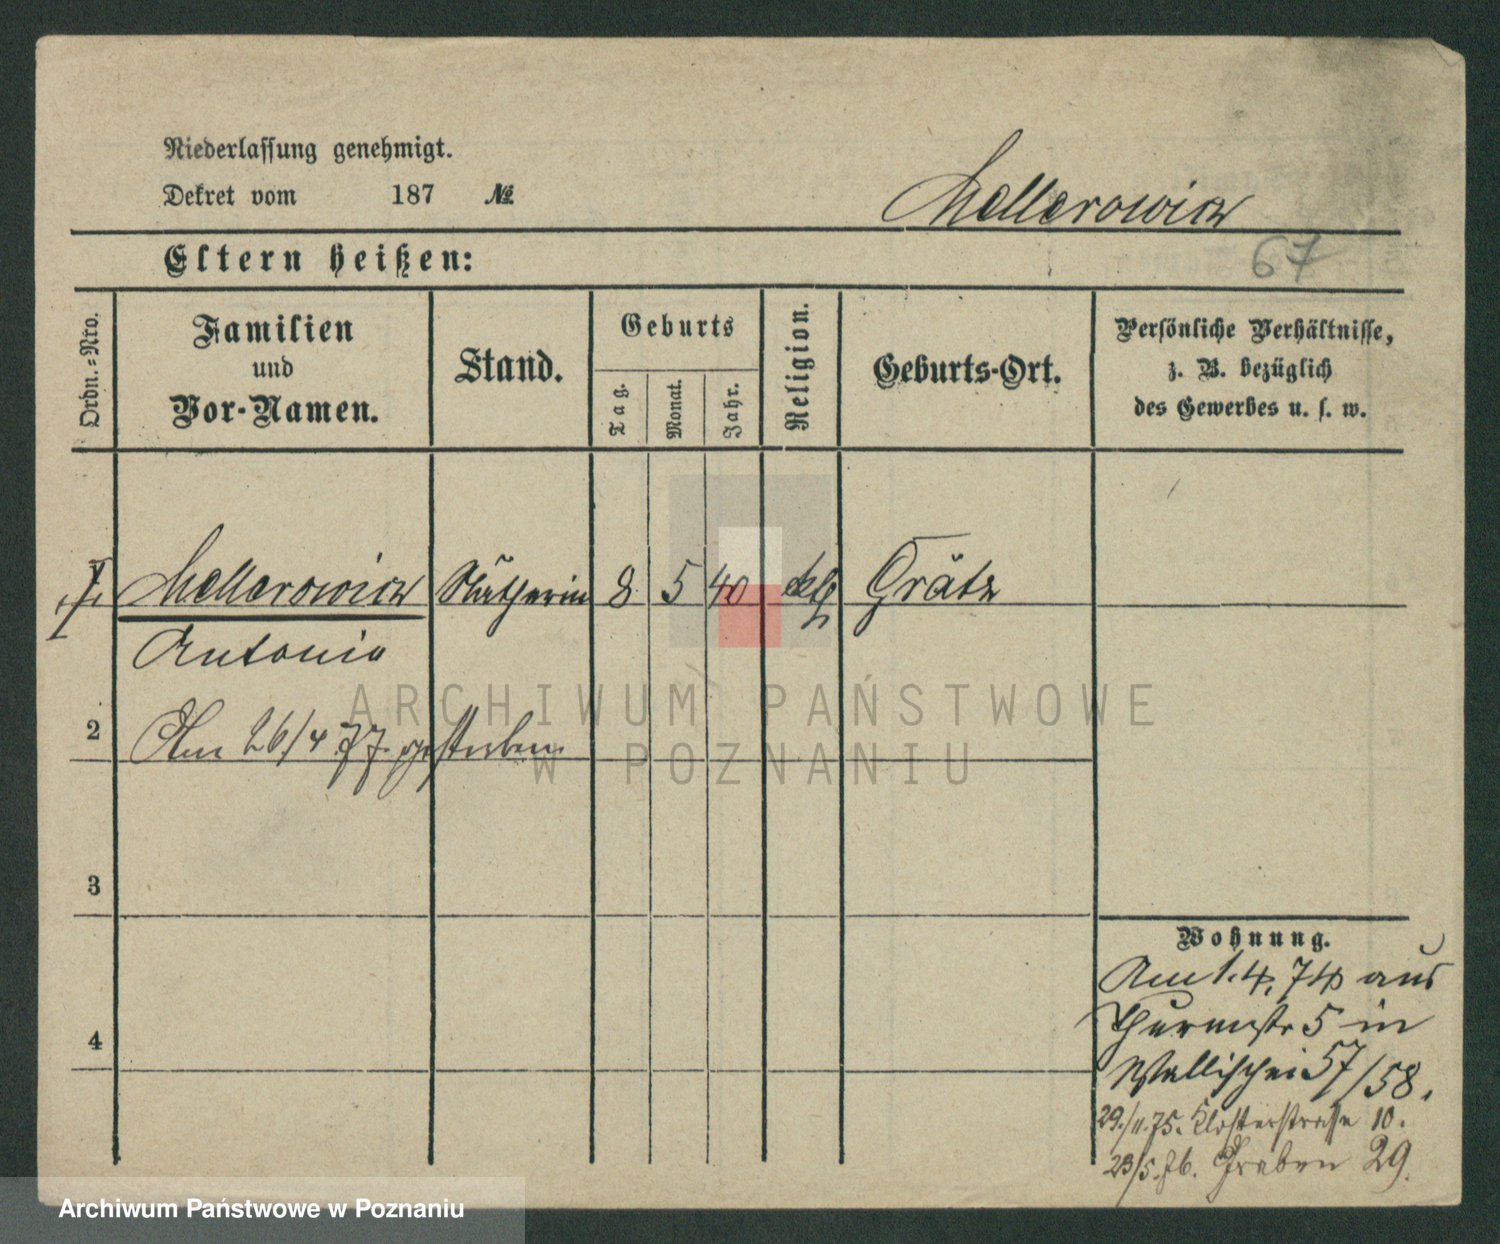 Niederlassung genehmigt.
Dekret vom 187 №
Mellerowicz
Eltern heißen:
67
Ordn.=Nro.
Familien
und
Vor-Namen.
Stand.
Geburts
Tag.
Monat.
Jahr.
Religion.
Geburts-Ort.
Persönliche Verhältnisse,
z. B. bezüglich
des Gewerbes u. s. w.
1 Mellerowicz Nätherin 8 5 40 klh Grätz
Antonia
2 Am 26/4 77. gestorben
3
4
Wohnung.
Am 1. 4. 74 aus
Thurmstr 5 in
Wallischei 57/58.
29./11.75. Klosterstraße 10.
23/5.76. Graben 29.
ARCHIWUM PAŃSTWOWE
W POZNANIU
Archiwum Państwowe w Poznaniu